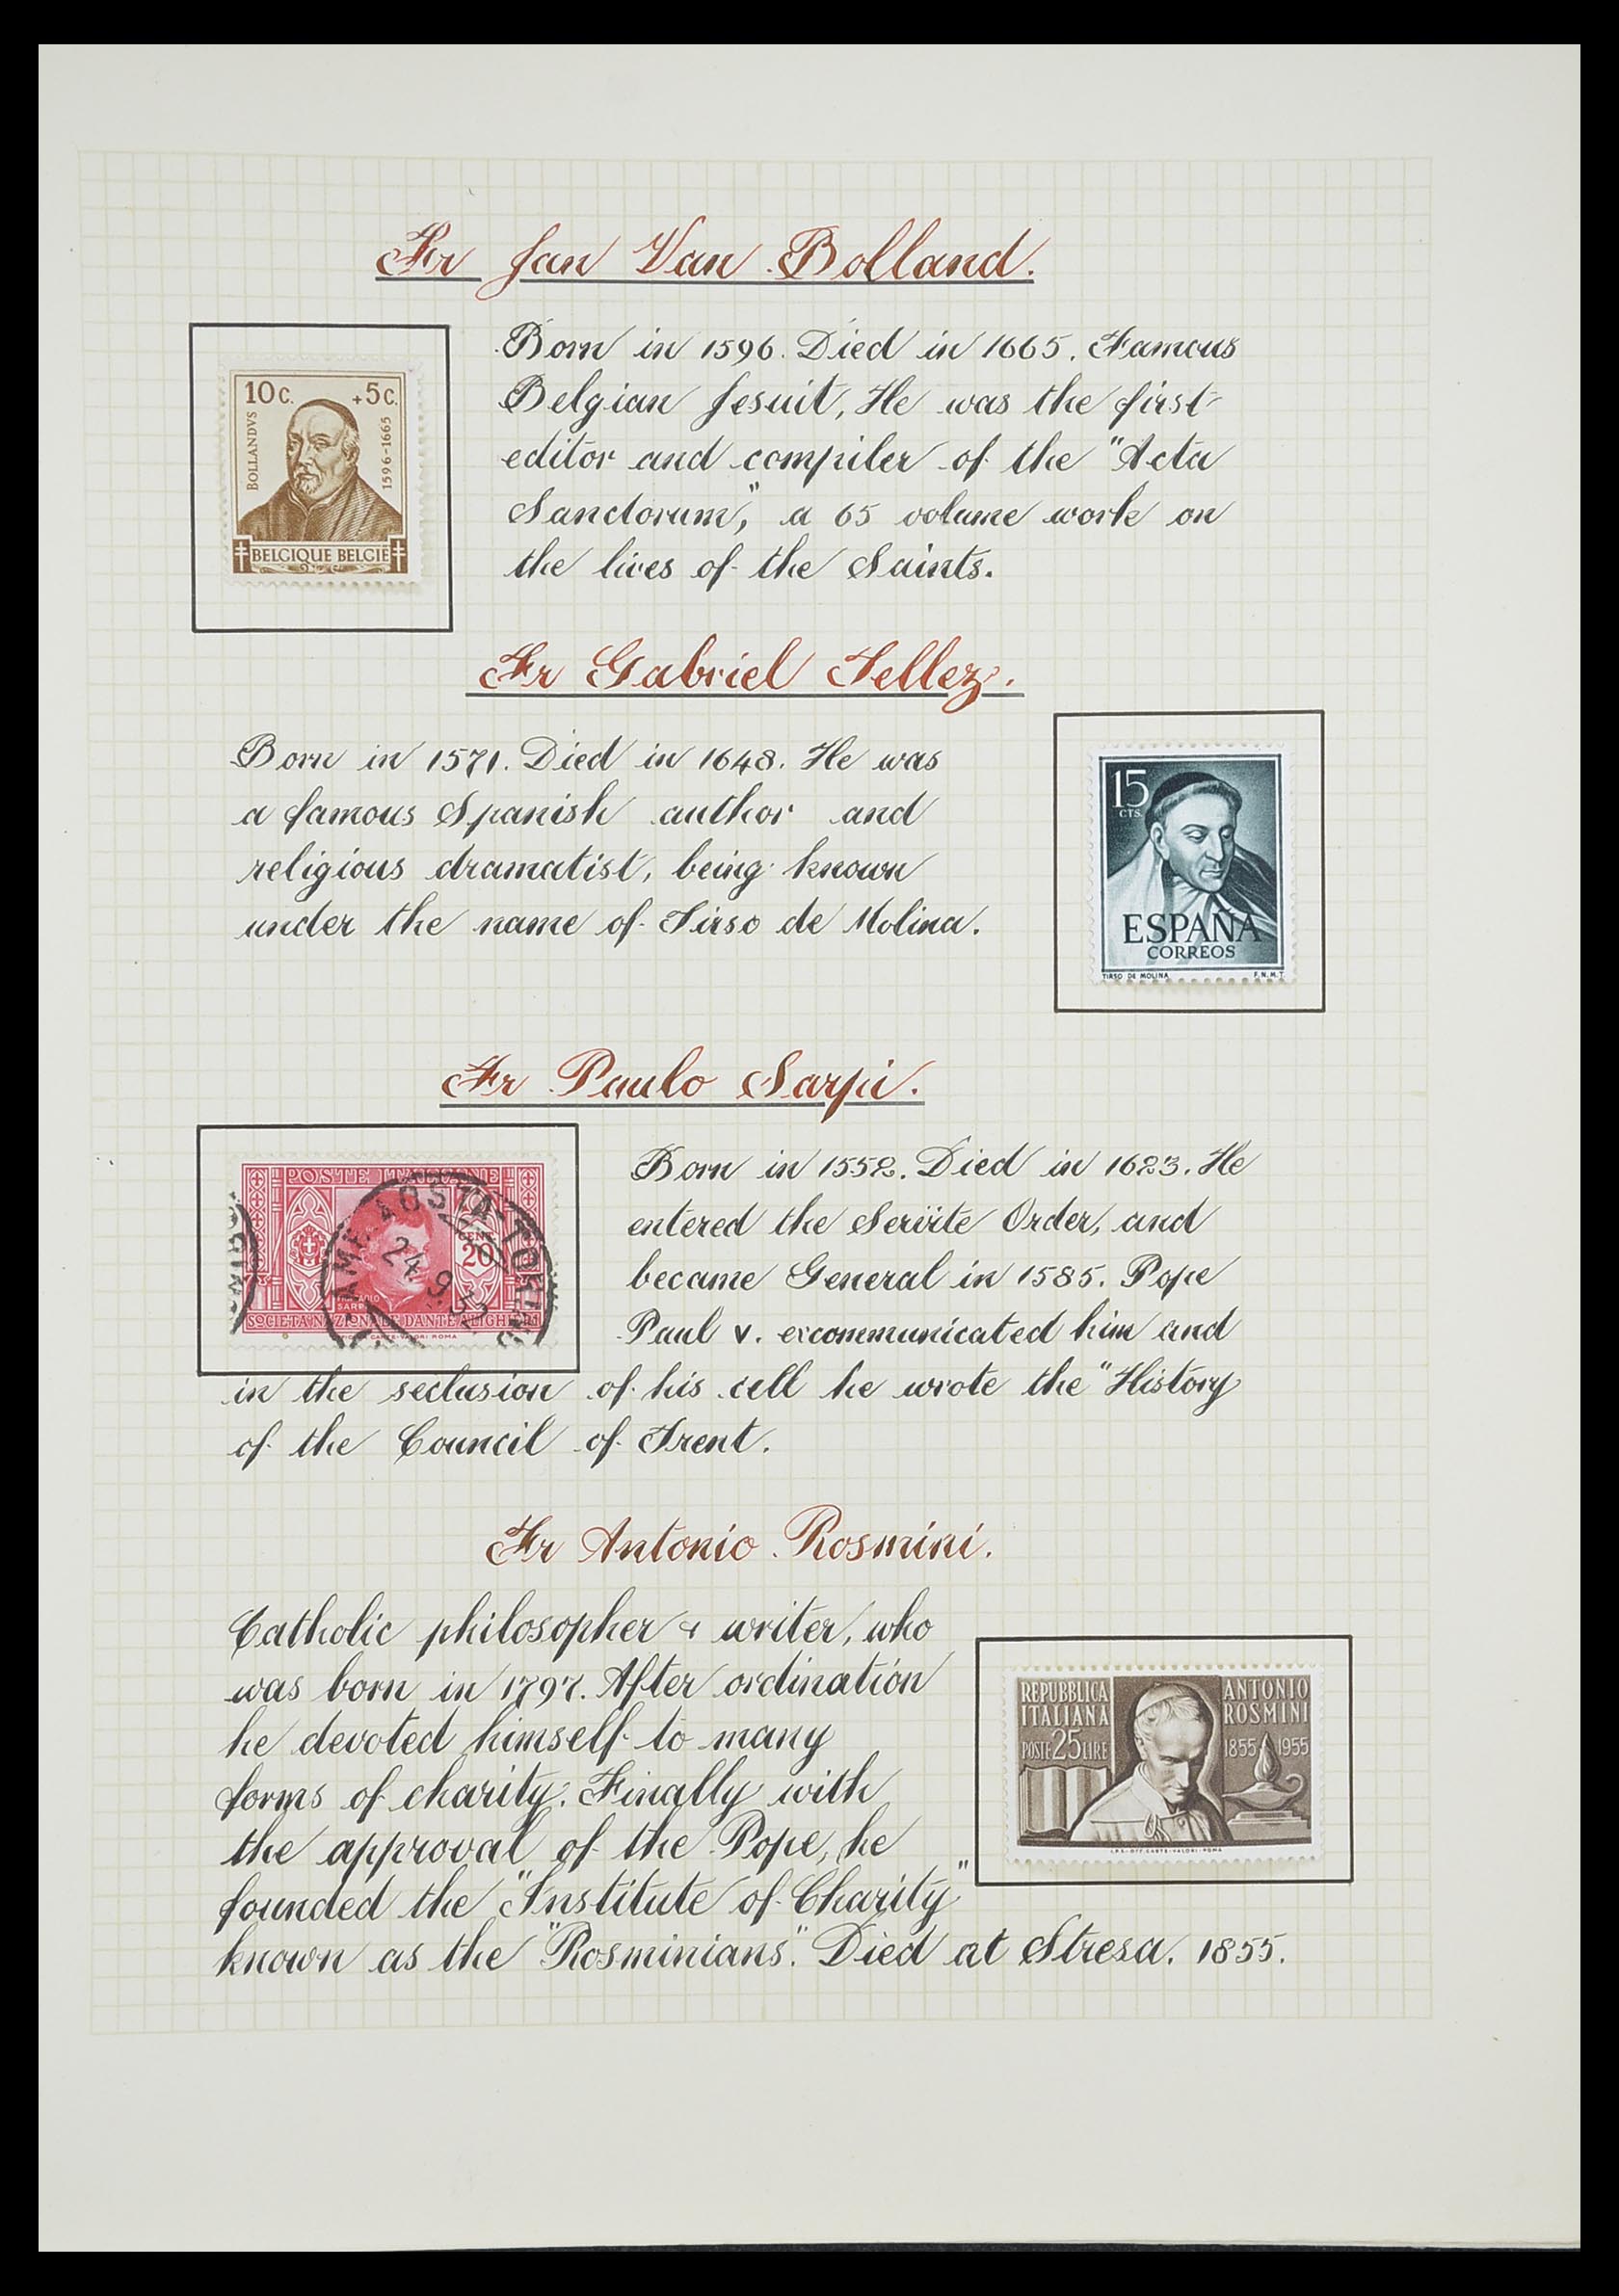 Fr Jan Van Bolland.
10c. +5c.
BOLLANDVS
1596-1665
BELGIQUE BELGIË
Born in 1596. Died in 1665. Famous
Belgian Jesuit, He was the first
editor and compiler of the "Acta
Sanctorum," a 65 volume work on
the lives of the Saints.
Fr Gabriel Tellez.
Born in 1571. Died in 1648. He was
a famous Spanish author and
religious dramatist, being known
under the name of Tirso de Molina.
15
CTS.
ESPAÑA
CORREOS
TIRSO DE MOLINA F.N.M.T
Fr Paulo Sarpi.
POSTE ITALIANE
CENT.
20
SARPI
SOCIETÀ NAZIONALE DANTE ALIGHIERI
AOSTA-TORINO
24.9.32
Born in 1552. Died in 1623. He
entered the Servite Order, and
became General in 1585. Pope
Paul v. excommunicated him and
in the seclusion of his cell he wrote the "History
of the Council of Trent.
Fr Antonio Rosmini.
Catholic philosopher & writer, who
was born in 1797. After ordination
he devoted himself to many
forms of charity. Finally with
the approval of the Pope, he
founded the "Institute of Charity"
known as the "Rosminians". Died at Stresa. 1855.
REPUBBLICA
ITALIANA
POSTE 25 LIRE
ANTONIO
ROSMINI
1855 1955
I.P.S.-OFF.CARTE-VALORI-ROMA